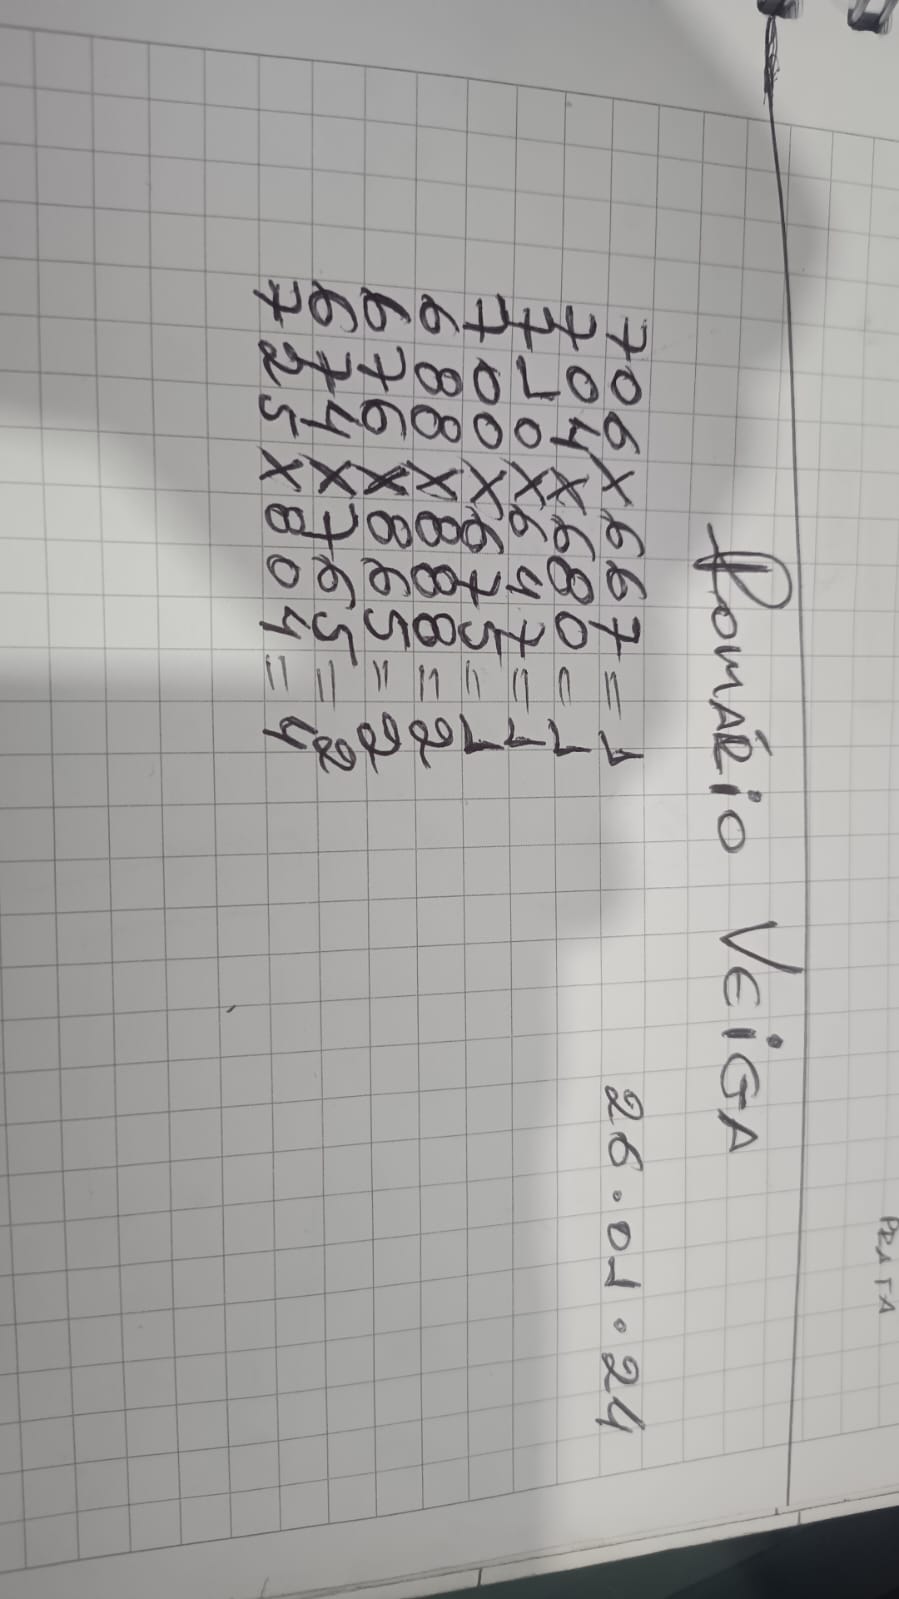 PRATA
Romário Veiga
26.01.24
706x667=1
704x680=1
710x647=1
700x675=1
688x888=2
676x865=2
674x765=2
725x804=4